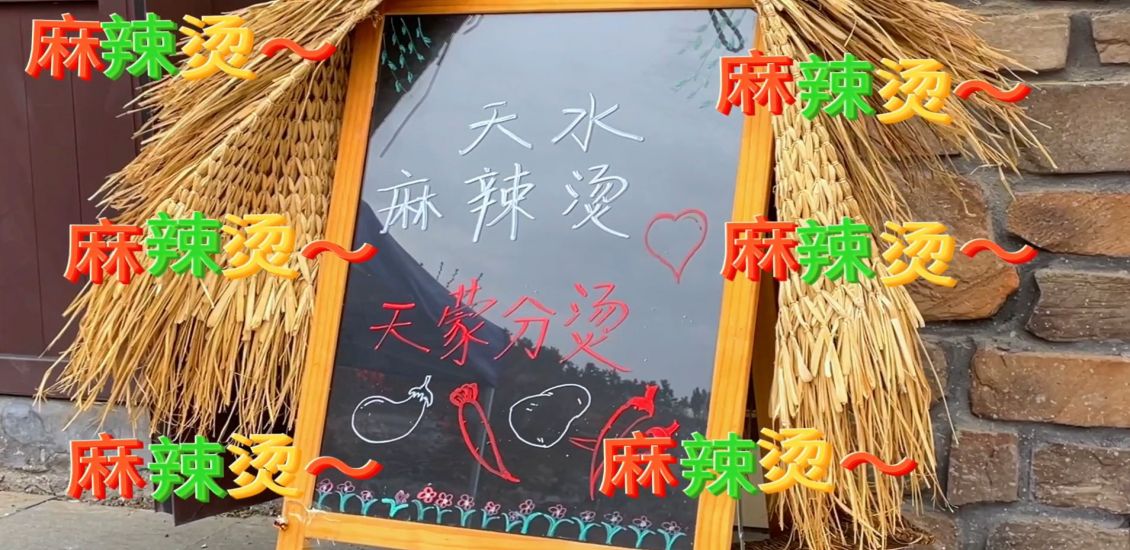 麻辣烫～
麻辣烫～
天水
麻辣烫
麻辣烫～
麻辣烫～
天蒙分烫
麻辣烫～
麻辣烫～